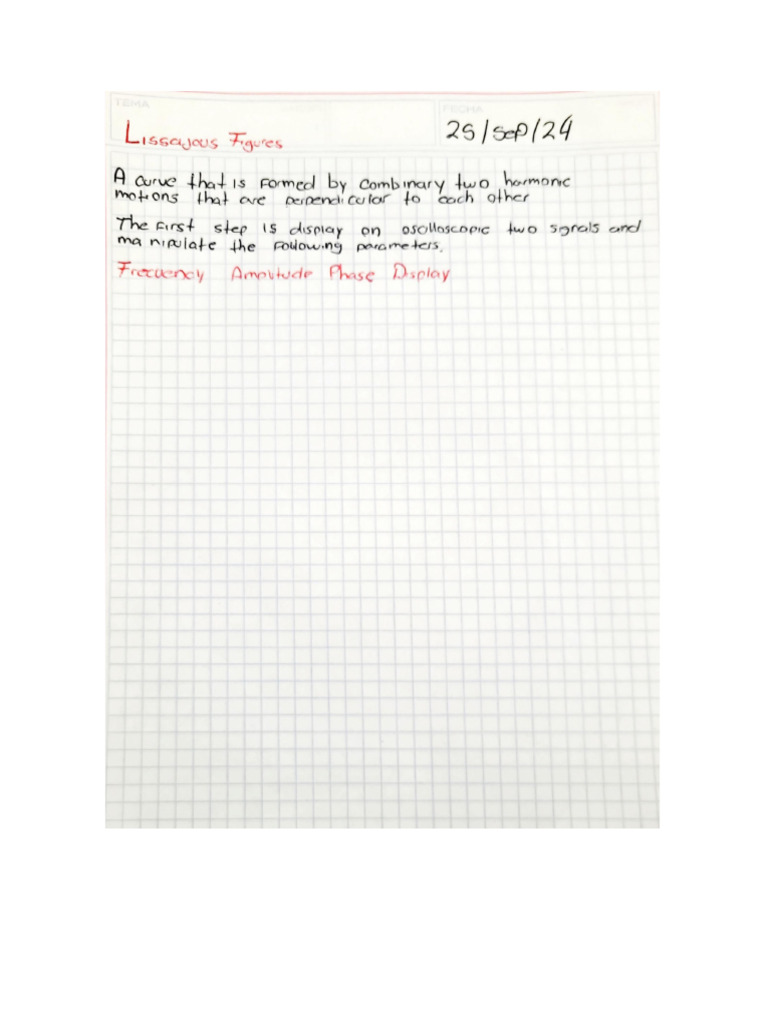 TEMA
FECHA
Lissajous Figures
25/sep/24
A curve that is formed by combinary two harmonic
motions that are perpendicular to each other
The first step is display on oscilloscopic two signals and
manipulate the following parameters.
Frecuency Amplitude Phase Display